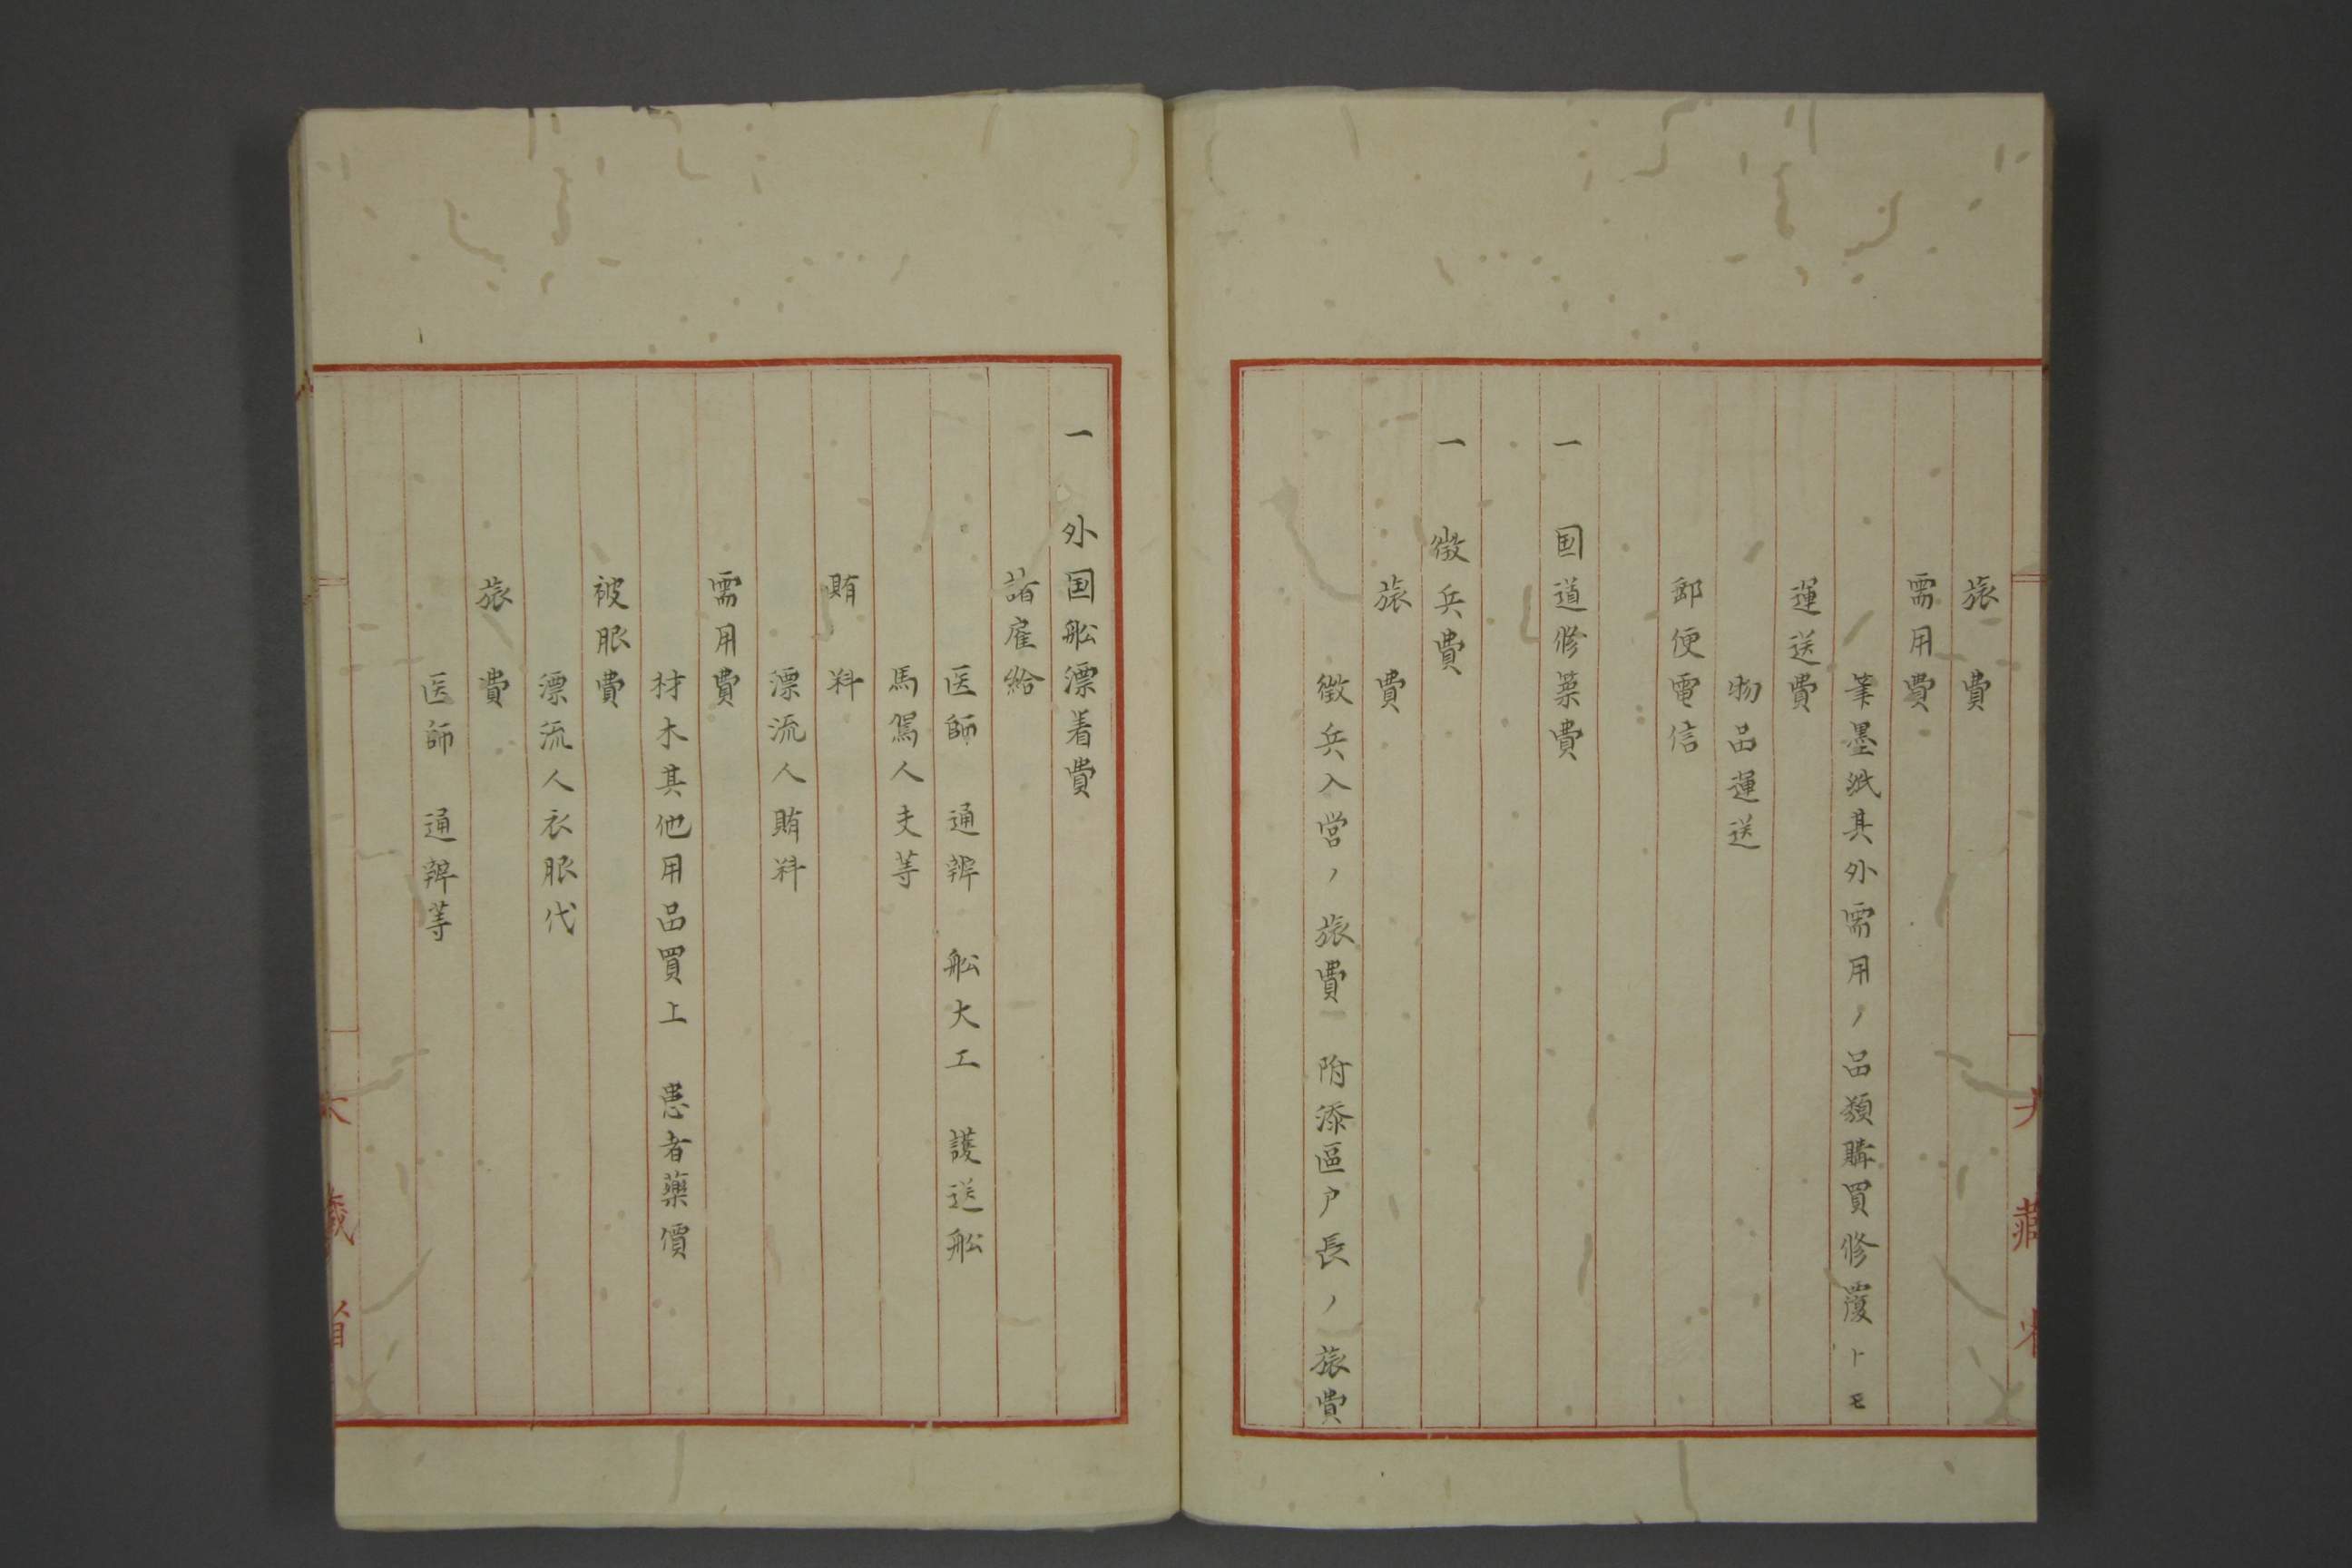 旅費
需用費
筆墨紙其外需用ノ品類購買修覆トモ
運送費
物品運送
郵便電信
一 国道修築費
一 徴兵費
旅費
徴兵入営ノ旅費 附添區戸長ノ旅費
一 外国舩漂着費
諸雇給
医師 通辨 舩大工 護送舩
馬駕人夫等
賄料
漂流人賄料
需用費
材木其他用品買上 患者藥價
被服費
漂流人衣服代
旅費
医師 通辨等
大藏省